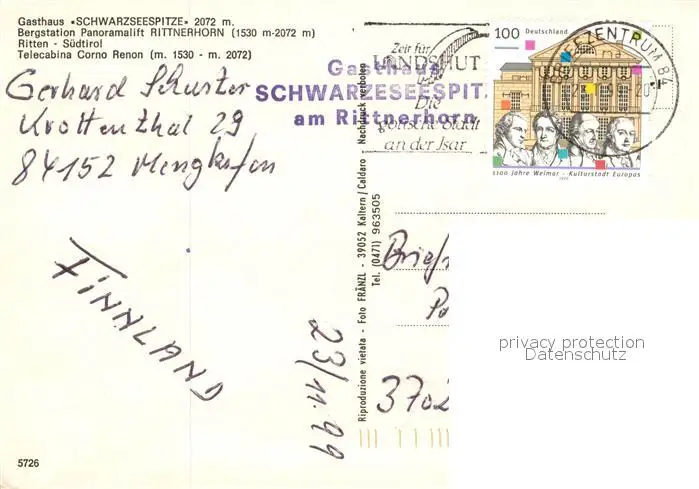 Gasthaus «SCHWARZSEESPITZE» 2072 m.
Bergstation Panoramalift RITTNERHORN (1530 m-2072 m)
Ritten - Südtirol
Telecabina Corno Renon (m. 1530 - m. 2072)
Gerhard Schuster
Krottenthal 29
84152 Mengkofen
FINNLAND
23/11.99
5726
Gasthaus
SCHWARZEESPIT
am Rittnerhorn
Zeit für
LANDSHUT
Die
gotische Stadt
an der Isar
100 Deutschland
1100 Jahre Weimar - Kulturstadt Europas
BRIEFZENTRUM 84
Riproduzione vietata - Foto FRÄNZL - 39052 Kaltern / Caldaro Nachdruck verboten
Tel. (0471) 963505
Briefm
3702
privacy protection
Datenschutz